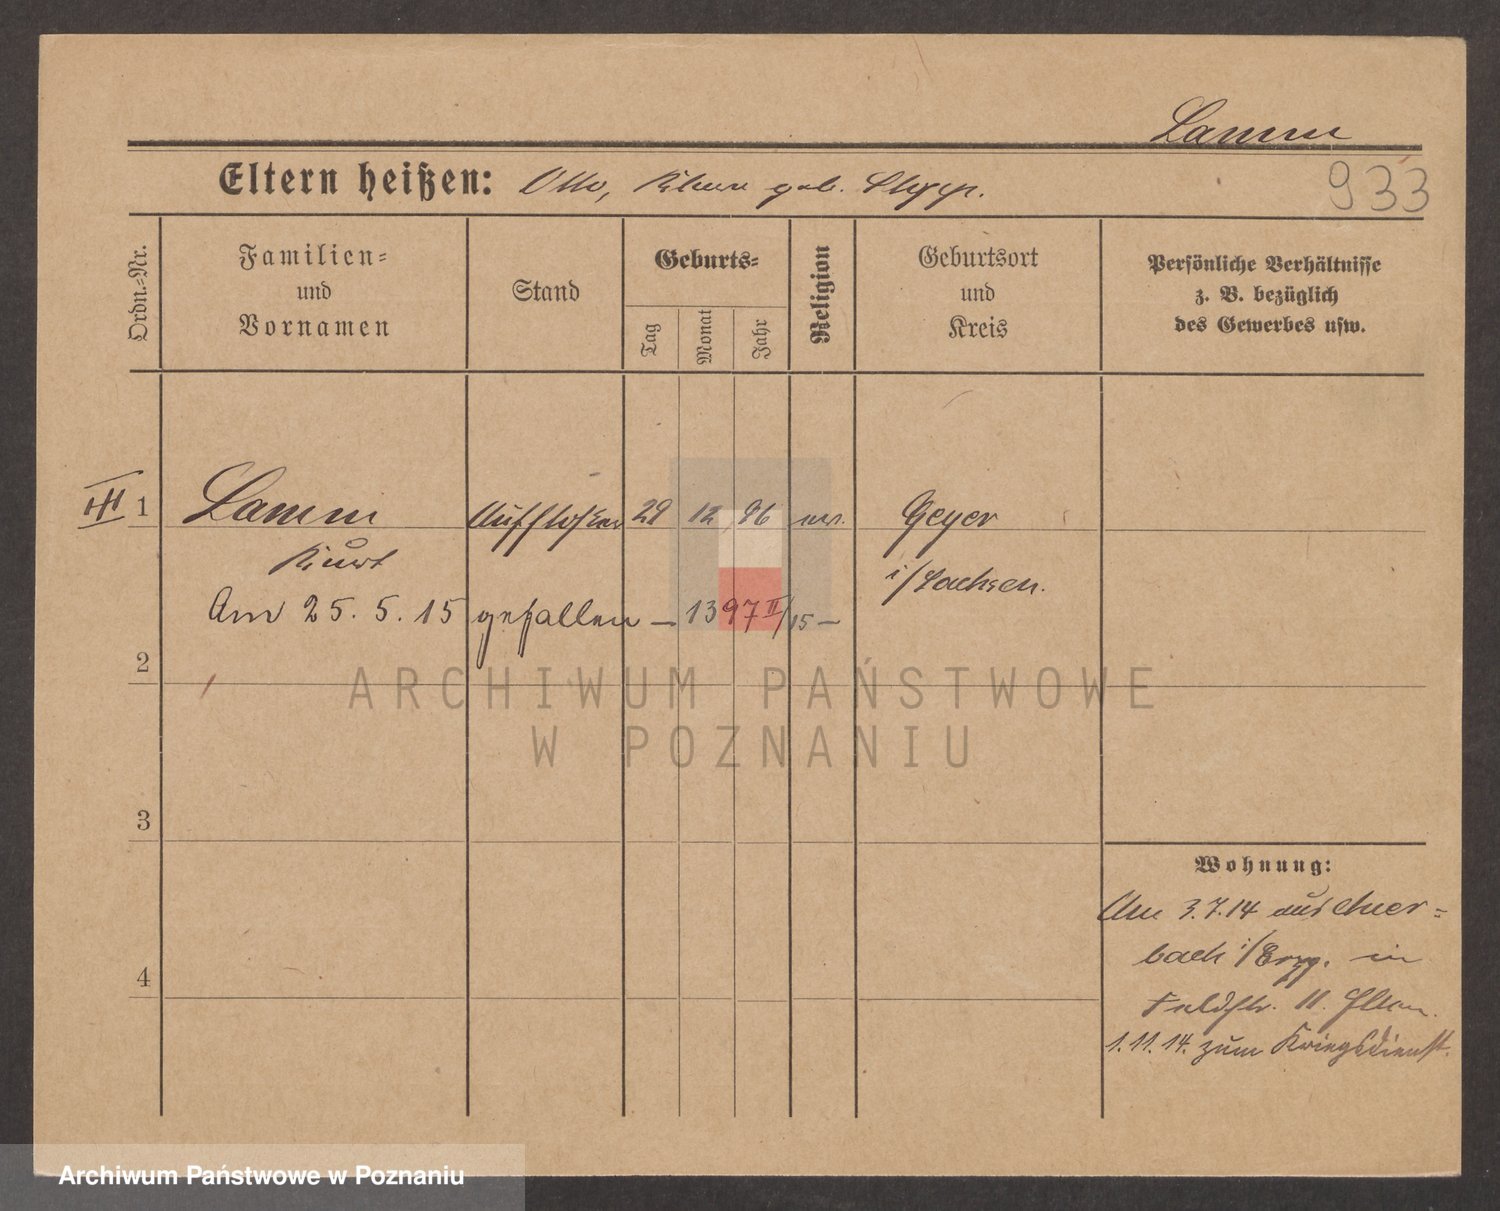 Lamm
Eltern heißen: Otto, geb.
933
Ordn.-Nr.
Familien-
und
Vornamen
Stand
Geburts-
Tag
Monat
Jahr
Religion
Geburtsort
und
Kreis
Persönliche Verhältnisse
z. B. bezüglich
des Gewerbes usw.
III 1 Lamm 29 12 96 ev. Geyer
Kurt i/Sachsen.
Am 25. 5. 15 gefallen — 1397 II/15 —
2
ARCHIWUM PAŃSTWOWE
W POZNANIU
3
Wohnung:
Am 3.7.14 aus Auer-
bach i/Erzg. in
4
Feldstr. 11. Eltern.
1.11.14. zum Kriegsdienst.
Archiwum Państwowe w Poznaniu